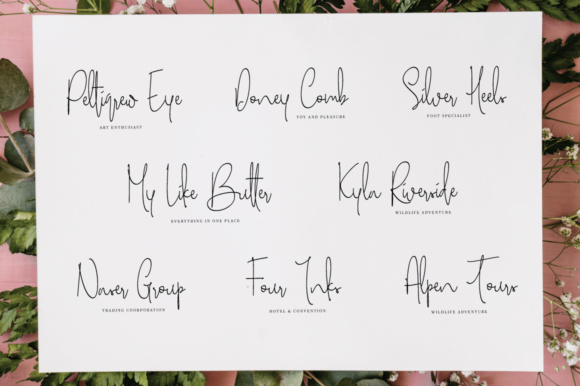 Peltigrew Eye
ART ENTHUSIAST
Doney Comb
TOY AND PLEASURE
Silver Heels
FOOT SPECIALIST
My Like Butter
EVERYTHING IN ONE PLACE
Kyla Riverside
WILDLIFE ADVENTURE
Naser Group
TRADING COORPORATION
Four Inks
HOTEL & CONVENTION
Alpen Tours
WILDLIFE ADVENTURE